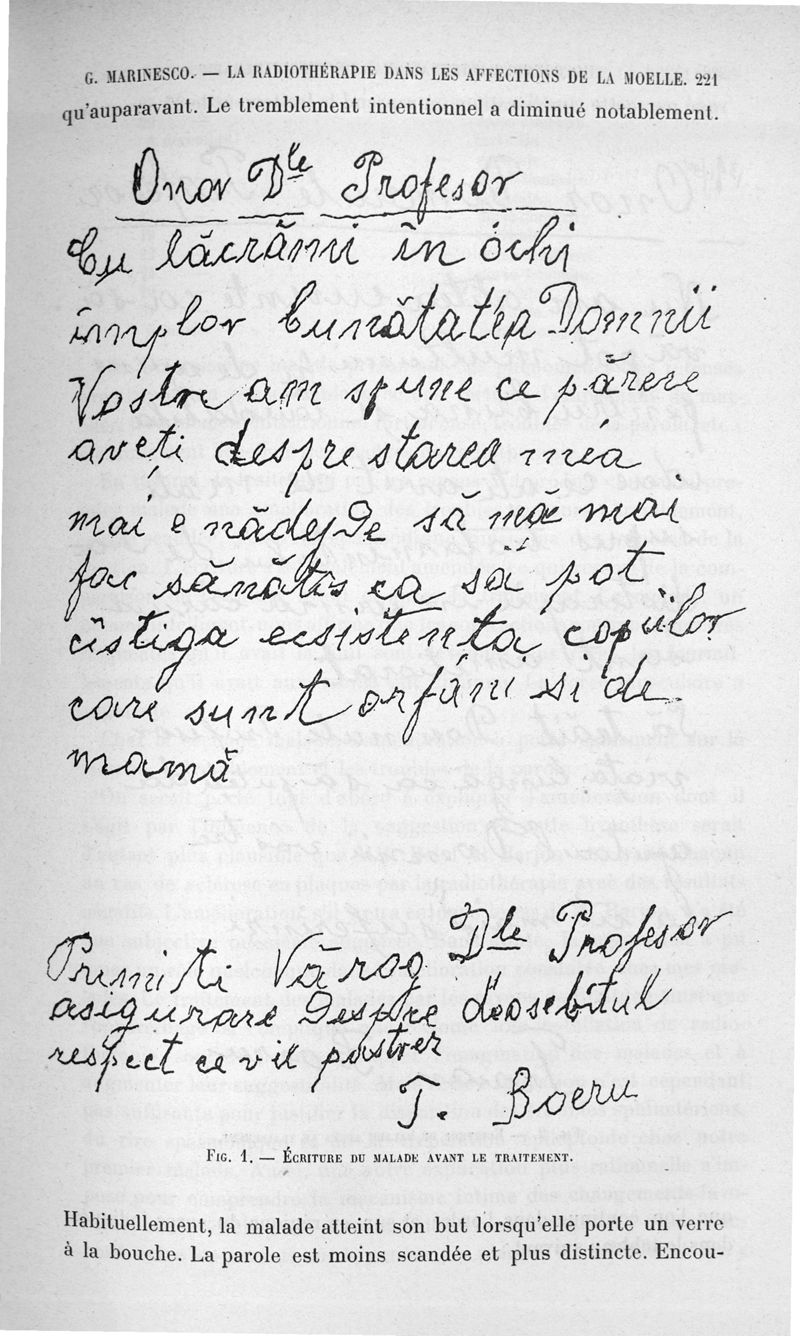 G. MARINESCO. — LA RADIOTHÉRAPIE DANS LES AFFECTIONS DE LA MOELLE. 221
qu'auparavant. Le tremblement intentionnel a diminué notablement.
Onor Dle Profesor
Cu lăcrămi în óchi
implor bunătatéa Domnii
Vostre am spune ce părere
aveti despre starea méa
mai e nădejde să mă mai
fac sănătos ca să pot
cîstiga ecsistenta copiilor
care sunt orfáni si de
mamă
Primiti Va rog Dle Profesor
asigurare despre deosebitul
respect ce vil păstrez
T. Boeru
FIG. 1. — ÉCRITURE DU MALADE AVANT LE TRAITEMENT.
Habituellement, la malade atteint son but lorsqu'elle porte un verre
à la bouche. La parole est moins scandée et plus distincte. Encou-